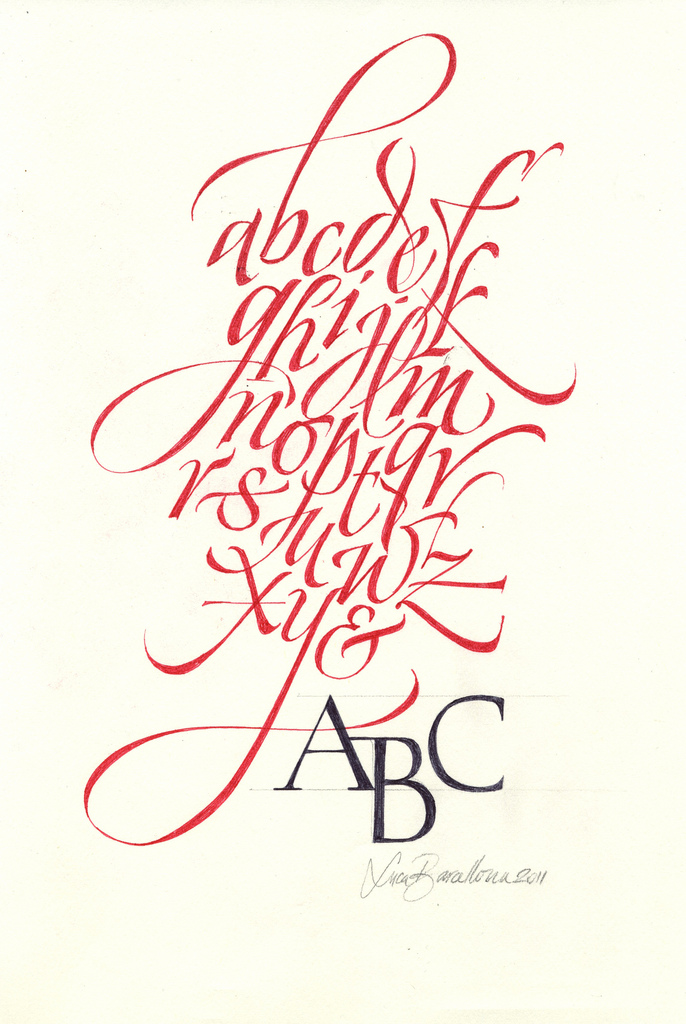 abcdef
ghijk
lm
nopq
rst
uvw
xyz
&
ABC
Luca Barcellona 2011